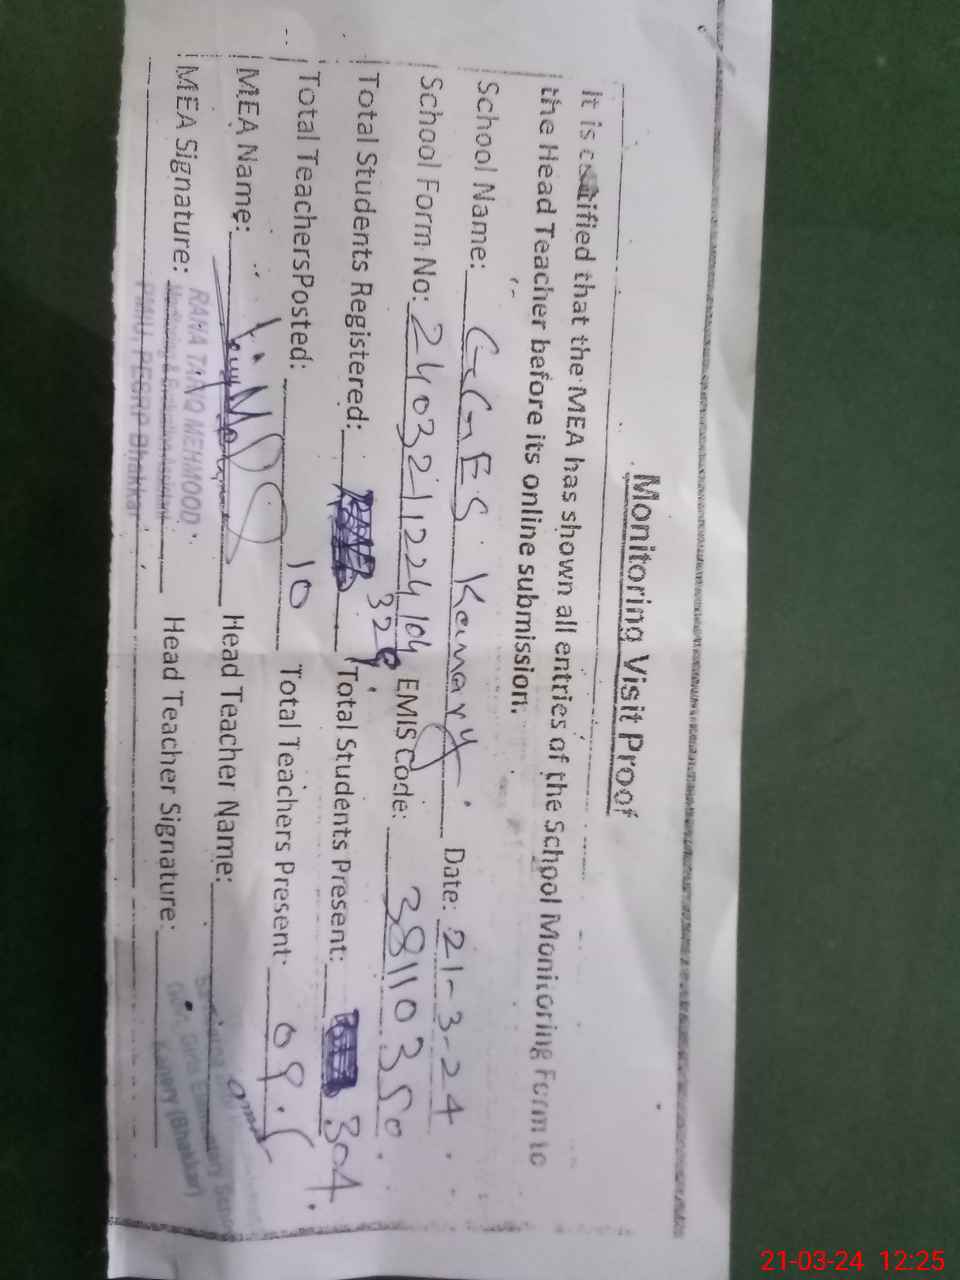 Monitoring Visit Proof
It is certified that the MEA has shown all entries of the School Monitoring Form to
the Head Teacher before its online submission.
School Name: GGES Kanary Date: 21-3-24
School Form No: 2403211224104 EMIS Code: 38110350
Total Students Registered: 329 Total Students Present: 304
Total TeachersPosted: 10 Total Teachers Present: 09
MEA Name: Head Teacher Name:
MEA Signature: Head Teacher Signature:
RANA TARIQ MEHMOOD
Monitoring & Evaluation Assistant
PMIU, PESRP Bhakkar
Govt. Girls Elementary School
Kanery (Bhakkar)
21-03-24 12:25